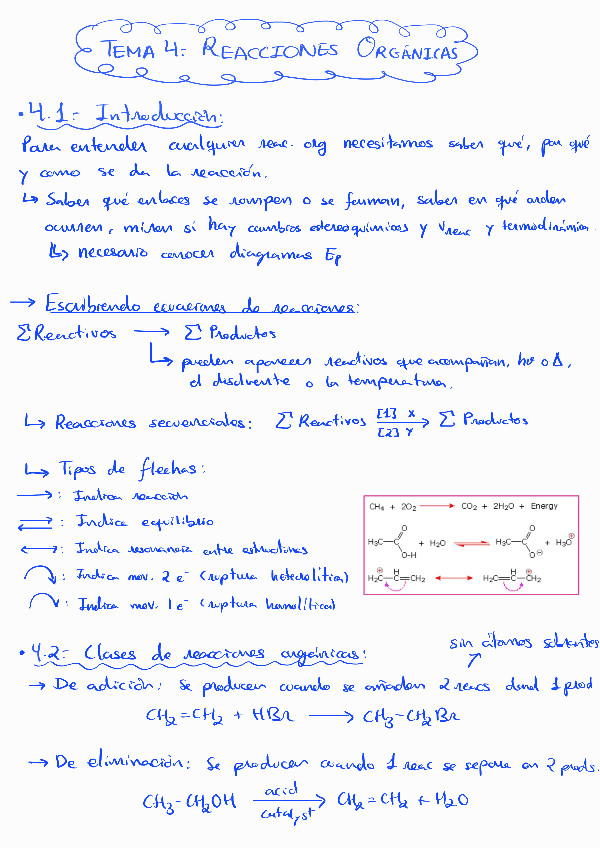 TEMA 4: REACCIONES ORGÁNICAS
• 4.1= Introducción:
Para entender cualquier reac. org necesitamos saber qué, por qué
y como se da la reacción.
↳ Saber qué enlaces se rompen o se forman, saber en qué orden
ocurren, miren si hay cambios estereoquímicos y Vreac y termodinámica.
↳ necesario conocer diagramas Ep
→ Escribiendo ecuaciones de reacciones:
ΣReactivos → Σ Productos
↳ pueden aparecer reactivos que acompañan, hν o Δ,
el disolvente o la temperatura.
↳ Reacciones secuenciales: Σ Reactivos [1] X [2] Y → Σ Productos
↳ Tipos de flechas:
→ : Indica reacción
⇌ : Indica equilibrio
↔ : Indica resonancia entre estructuras
: Indica mov. 2 e⁻ (ruptura heterolítica)
: Indica mov. 1 e⁻ (ruptura homolítica)
CH₄ + 2O₂ → CO₂ + 2H₂O + Energy
H₃C-C O O-H + H₂O ⇌ H₃C-C O O⊖ + H₃O⊕
H₂C⊕-C H=CH₂ ↔ H₂C=C H-CH₂⊕
• 4.2= Clases de reacciones orgánicas:
sin átomos sobrantes
→ De adición: Se producen cuando se añaden 2 reacs dand 1 prod
CH₂=CH₂ + HBr → CH₃-CH₂Br
→ De eliminación: Se producen cuando 1 reac se separa en 2 prods.
CH₃-CH₂OH acid catalyst → CH₂=CH₂ + H₂O